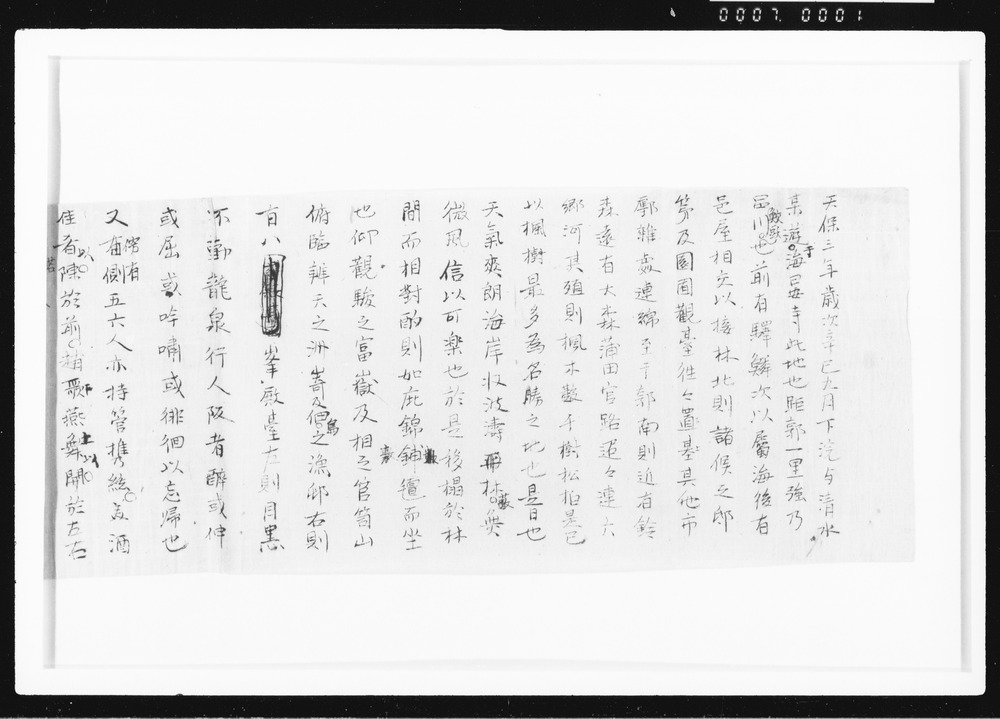 0007.0001
天保三年歳次辛巳九月下澣与清水
某遊于海晏寺此地也距郭一里強乃
品川也前有驛鱗次以屬海後有
邑屋相交以接林北則諸侯之邸
第及園囿觀臺往々置基其他市
廓雜處連綿至于郭南則近有鈴
森遠有大森蒲田官路迢々連六
郷河其殖則楓木數千樹松柏是已
以楓樹最多為名勝之地也是日也
天氣爽朗海岸収波濤林叢興
微風信以可楽也於是移榻於林
間而相對酌則如庇錦鋪氊而坐
也仰觀駿之富嶽及相之官筥山
俯臨辨天之洲嵜及佃島之漁邸右則
百八 峯殿臺左則目黒
不動龍泉行人阪者醉或伸
或屈或吟嘯或徘徊以忘帰也
又傍有側五六人亦持管携絃美酒
佳肴陳於前趙歌燕舞開於左右